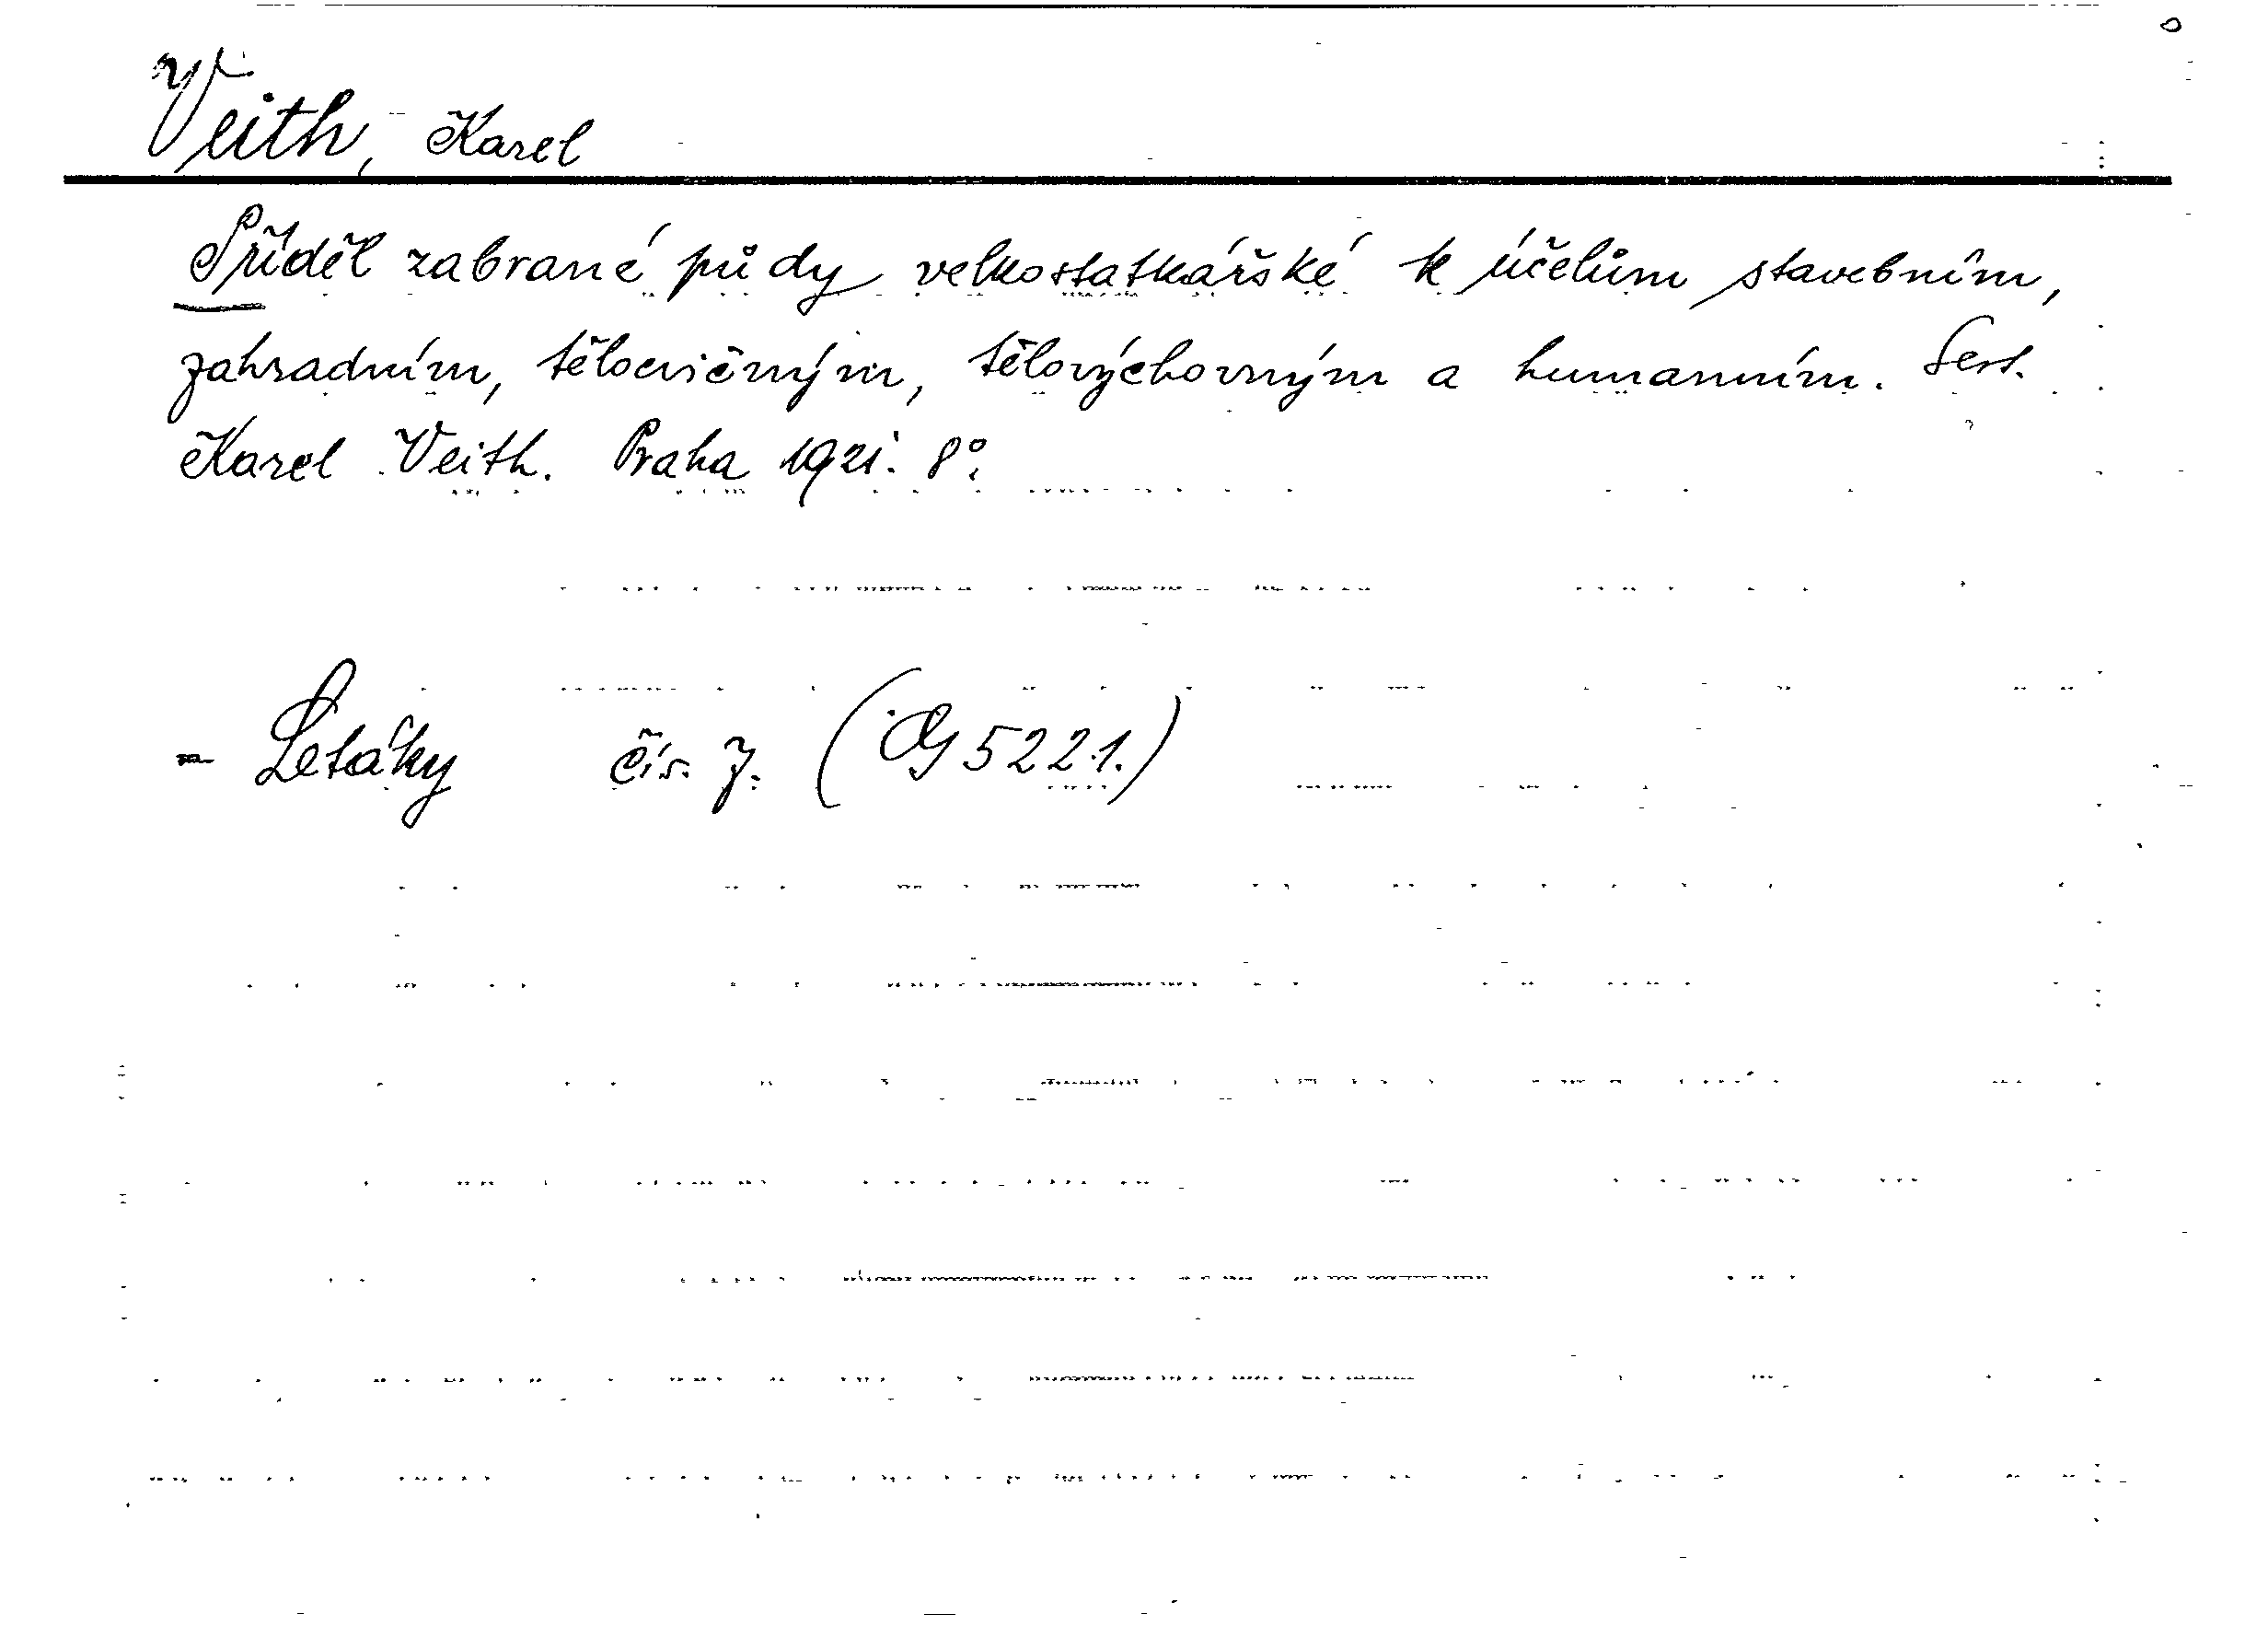 Veith, Karel
Příděl zabrané půdy velkostatkářské k účelům stavebním,
zahradním, tělocvičným, tělovýchovným a humanním. Sest.
Karel Veith. Praha 1921. 8°.
- Letáky čís. 7. (Og 5221.)